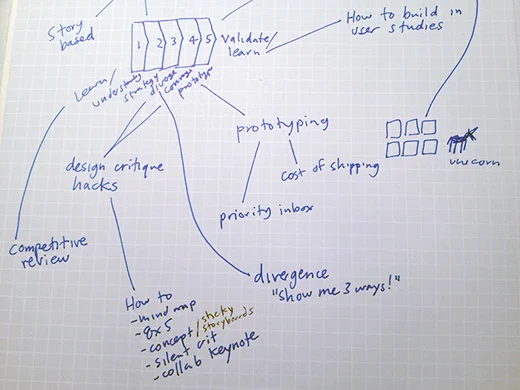 Story
based
1 2 3 4 5
validate/
learn
How to build in
user studies
Learn/
understand
strategy
diverge
converge
prototype
prototyping
cost of shipping
priority inbox
unicorn
design critique
hacks
competitive
review
divergence
"show me 3 ways!"
How to
- mind map
- 8x5
- concept/sticky
storyboards
- silent crit
- collab keynote